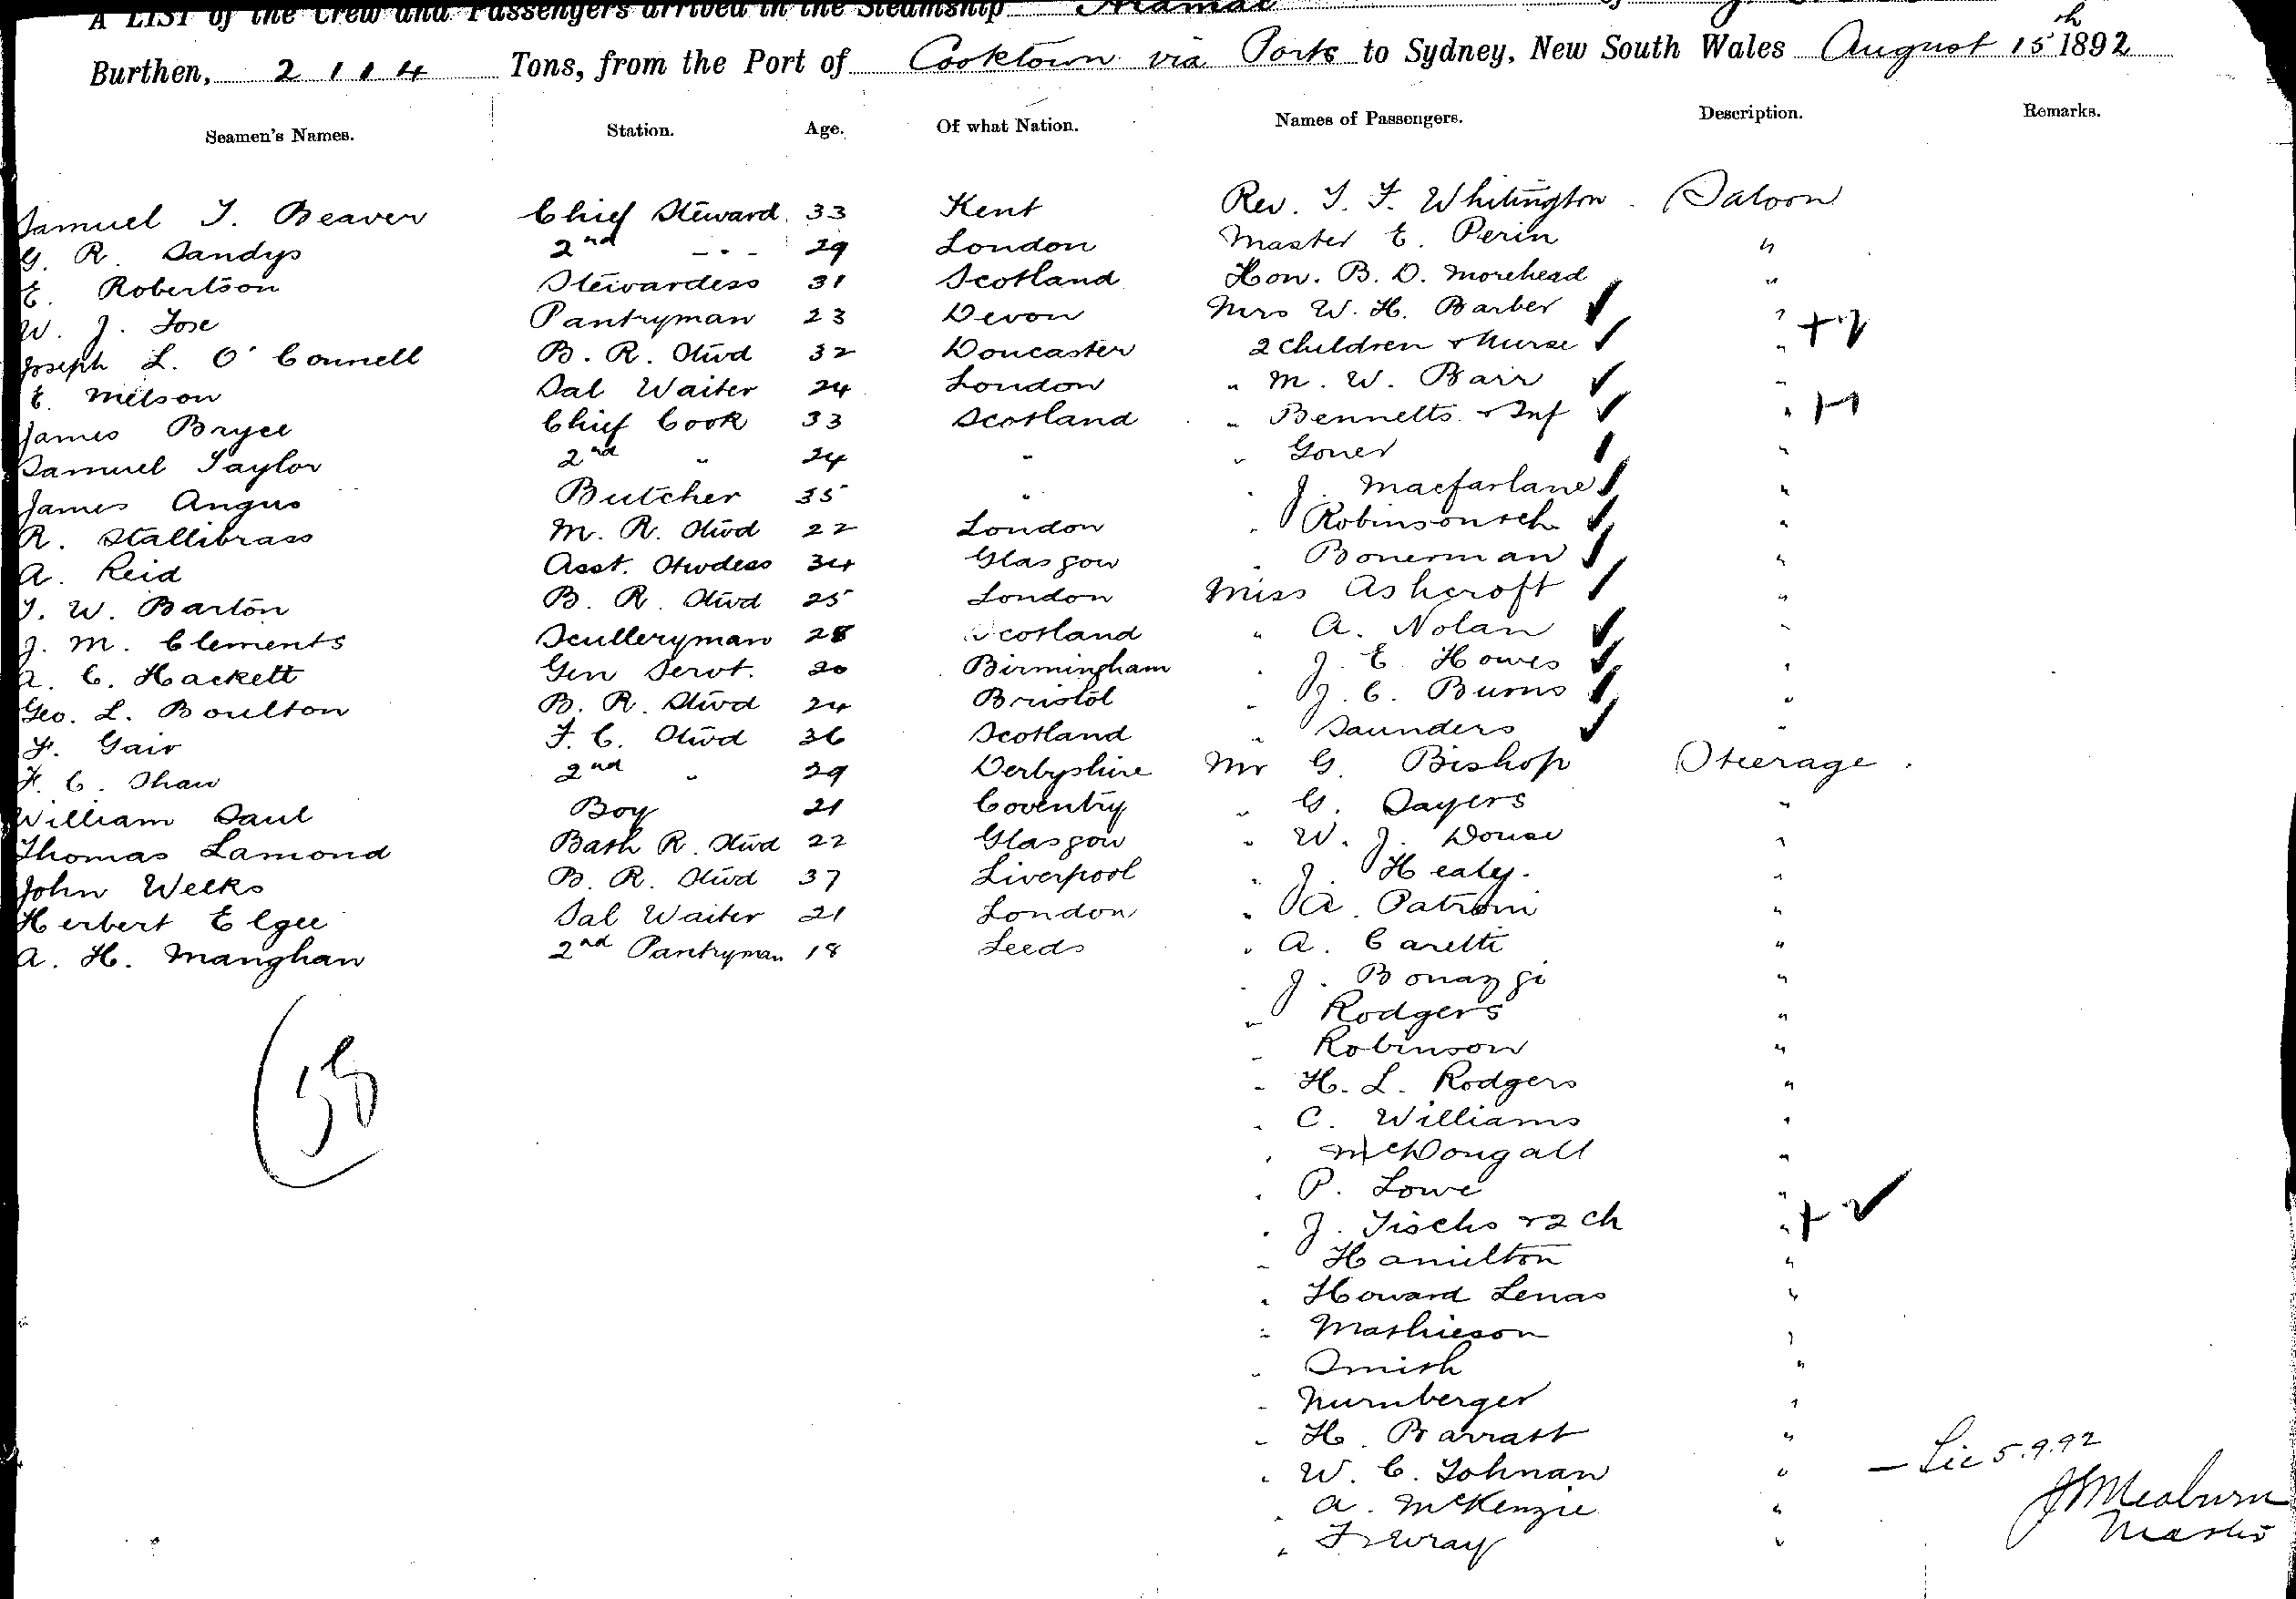 A LIST of the Crew and Passengers arrived in the Steamship Aramac of
Burthen, 2114 Tons, from the Port of Cooktown via Ports to Sydney, New South Wales August 15th 1892
Seamen's Names. Station. Age. Of what Nation. Names of Passengers. Description. Remarks.
Samuel T. Beaver Chief Steward 33 Kent Rev. T. F. Whitington Saloon
G. R. Sandys 2nd " 29 London Master E. Perin "
E. Robertson Stewardess 31 Scotland Hon. B. D. Morehead "
W. J. Jose Pantryman 23 Devon Mrs W. H. Barber ✓ "
Joseph L. O'Connell B. R. Stwd 32 Doncaster 2 children & Nurse ✓ " +2
E. Melson Sal Waiter 24 London " M. W. Barr ✓ "
James Bryce Chief Cook 33 Scotland " Bennetts & Inf ✓ " +1
Samuel Taylor 2nd " 24 " " Goner "
James Angus Butcher 35 " " J. Macfarlane "
R. Stallibrass M. R. Stwd 22 London " Robinson & ch ✓ "
A. Reid Asst. Stwdess 34 Glasgow " Bonerman "
T. W. Barton B. R. Stwd 25 London Miss Ashcroft "
J. M. Clements Sculleryman 28 Scotland " A. Nolan ✓ "
A. C. Hackett Gen Servt. 20 Birmingham " J. E. Howes ✓ "
Geo. L. Boulton B. R. Stwd 24 Bristol " J. C. Burns "
F. Gair F. C. Stwd 36 Scotland " Saunders ✓ "
F. C. Shaw 2nd " 29 Derbyshire Mr G. Bishop Steerage.
William Saul Boy 21 Coventry " G. Sayers "
Thomas Lamond Bath R. Stwd 22 Glasgow " W. J. Douse "
John Weeks B. R. Stwd 37 Liverpool " J. Healy. "
Herbert Elgee Sal Waiter 21 London " A. Patroni "
A. H. Manghan 2nd Pantryman 18 Leeds " A. Caretti "
" J. Bonazgi "
" Rodgers "
" Robinson "
" H. L. Rodgers "
" C. Williams "
" McDougall "
" P. Lowe "
" J. Tischs & 2 ch " +2
" Hamilton "
" Howard Lenas "
" Mathieson "
" Smith "
" Nurnberger "
" H. Barratt "
" W. C. Lohnan " — Lic 5.9.92
" A. McKenzie "
" F. Wray " Master